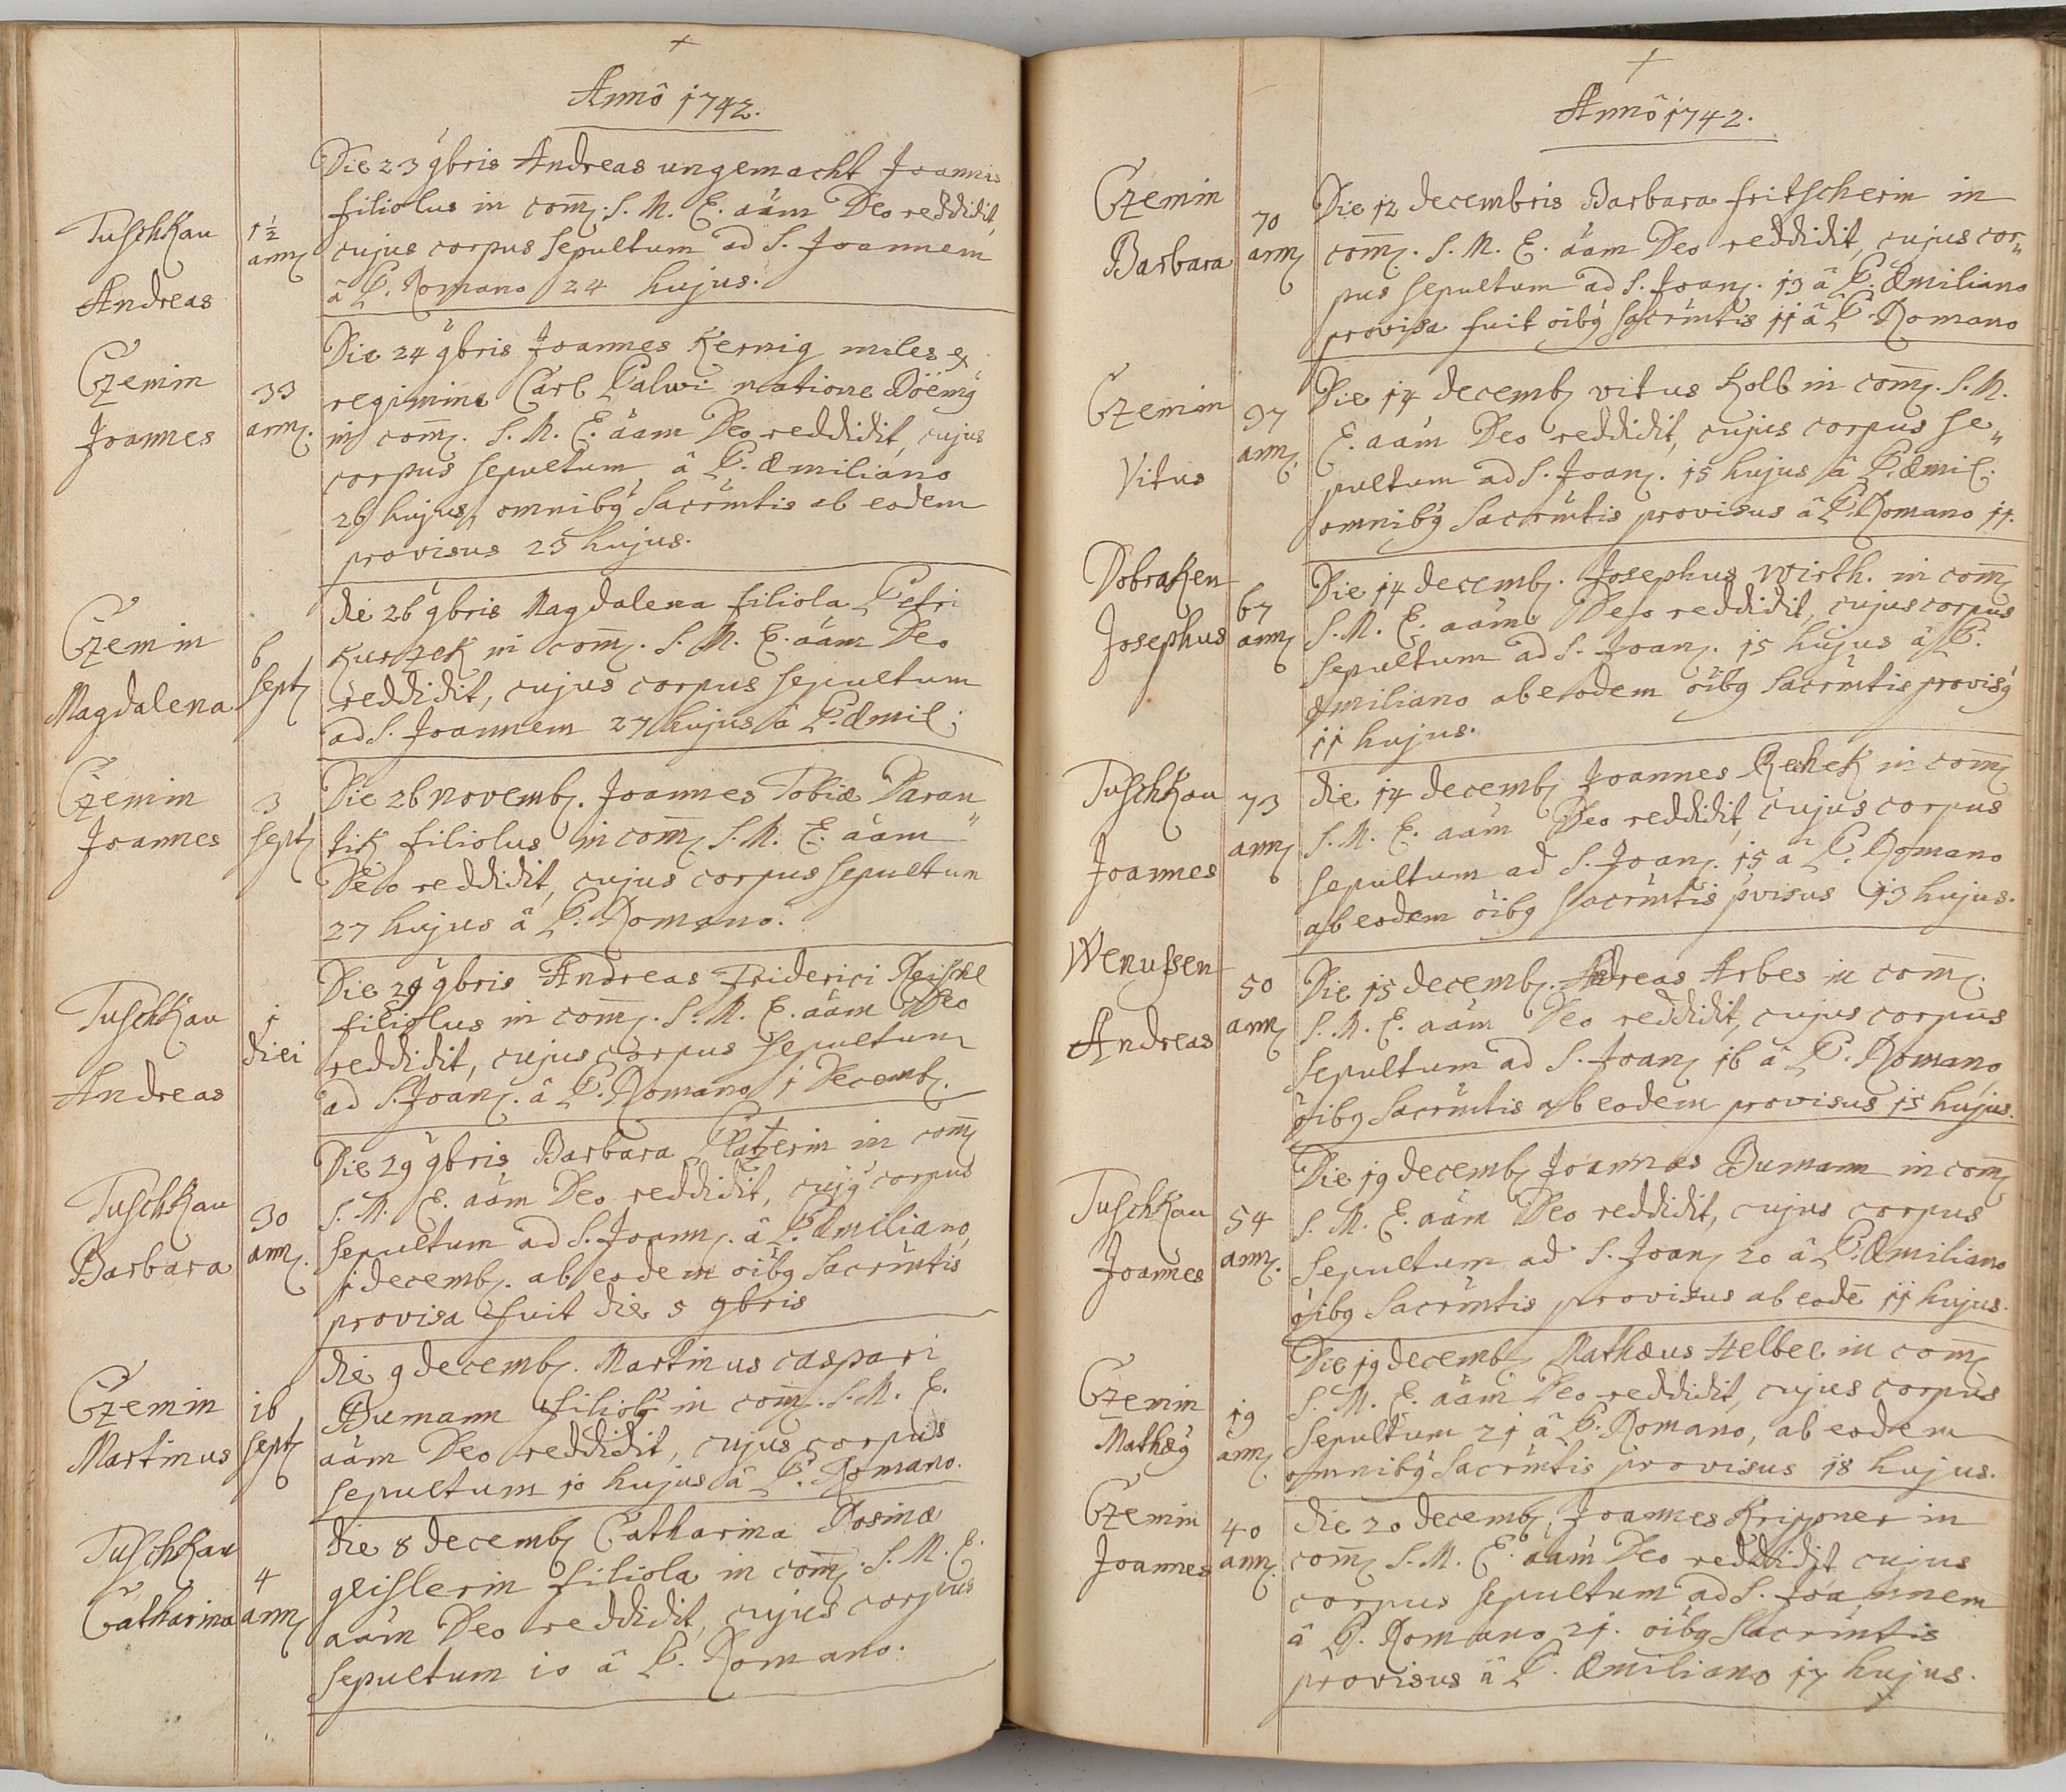 Annô 1742.
Die 23 9bris Andreas ungemacht Joannis
filiolus in com̄. S. M. E. aãm Deo reddidit,
Tuschkau 1½ ann. cujus corpus sepultum ad S. Joannem
Andreas â P. Romano 24 hujus.
Die 24 9bris Joannes Kernig miles ex
Czemin 33 regimine Carl Palwi natione Boëmg
Joannes ann. in com̄. S. M. E. aãm Deo reddidit, cujus
corpus sepultum â P. Æmiliano
26 hujus, omnibg Sacrm̃tis ab eodem
provisus 23 hujus.
die 26 9bris Magdalena filiola Petri
Czemin 6 Kurzek in com̄. S. M. E. aãm Deo
Magdalena sept. reddidit, cujus corpus sepultum
ad S. Joannem 27 hujus â P. Æmil:
Czemin 3 Die 26 novemb. Joannes Tobiæ Daran„
Joannes sept. tik filiolus in com̄. S. M. E. aãm
Deo reddidit, cujus corpus sepultum
27 hujus â P. Romano.
Die 29 9bris Andreas Friderici Reischl
Tuschkau 1 filiolus in com̄. S. M. E. aãm Deo
diei reddidit, cujus corpus sepultum
Andreas ad S. Joan. â P. Romano 1 Decemb.
Die 29 9bris Barbara Platzerin in com̄
Tuschkau 30 S. M. E. aãm Deo reddidit, cujg corpus
Barbara ann. sepultum ad S. Joann. â P. Æmiliano,
1 decemb. ab eodem oibg Sacrm̃tis
provisa fuit die 5 9bris
die 9 decemb. Martinus caspari
Czemin 16 Bumann filiolg in com̄. S. M. E.
Martinus sept. aãm Deo reddidit, cujus corpus
sepultum 10 hujus â P. Romano.
Tuschkau die 8 decemb. Catharina Rosinæ
4 geislerin filiola in com̄. S. M. E.
Catharina ann. aãm Deo reddidit, cujus corpus
sepultum 10 â P. Romano.
Annô 1742.
Czemin 70 Die 12 decembris Barbara fritscherin in
Barbara ann. com̄. S. M. E. aãm Deo reddidit, cujus cor„
pus sepultum ad S. Joan. 13 â P. Æmiliano
provisa fuit oibg sacrm̃tis 11 â P. Romano
Czemin 97 Die 14 decemb. vitus Kolb in com̄. S. M.
ann. E. aãm Deo reddidit, cujus corpus se„
Vitus pultum ad S. Joan. 15 hujus â P. Æmil:
omnibg Sacrm̃tis provisus â P. Romano 11.
Dobraken 67 Die 14 decemb. Josephus wirth. in com̄
Josephus ann. S. M. E. aãm Deo reddidit, cujus corpus
sepultum ad S. Joan. 15 hujus â P.
Æmiliano ab eodem oibg Sacrm̃tis provisg
11 hujus.
Tuschkau 73 die 14 decemb. Joannes Rechek in com̄
ann. S. M. E. aãm Deo reddidit, cujus corpus
Joannes sepultum ad S. Joan. 15 â P. Romano
ab eodem oibg sacrm̃tis pvisus 13 hujus.
Wenussen 50 Die 15 decemb. Andreas Arbes in com̄.
Andreas ann. S. M. E. aãm Deo reddidit, cujus corpus
sepultum ad S. Joan. 16 â P. Romano,
oibg Sacrm̃tis ab eodem provisus 15 hujus.
Die 19 decemb. Joannes Bumann in com̄
Tuschkau 54 S. M. E. aãm Deo reddidit, cujus corpus
Joañes ann. sepultum ad S. Joan. 20 â P. Æmiliano
oibg Sacrm̃tis provisus ab eodē 11 hujus.
Die 19 decemb. Mathæus Helbel in com̄
Czemin 19 S. M. E. aãm Deo reddidit, cujus corpus
Mathæg ann. sepultum 21 â P. Romano, ab eodem
omnibg Sacrm̃tis provisus 18 hujus.
Czemin 40 die 20 decemb. Joannes Krippner in
Joannes ann. com̄ S. M. E. aãm Deo reddidit cujus
corpus sepultum ad S. Joannem
â P. Romano 21. oibg Sacrm̃tis
provisus â P. Æmiliano 17 hujus.